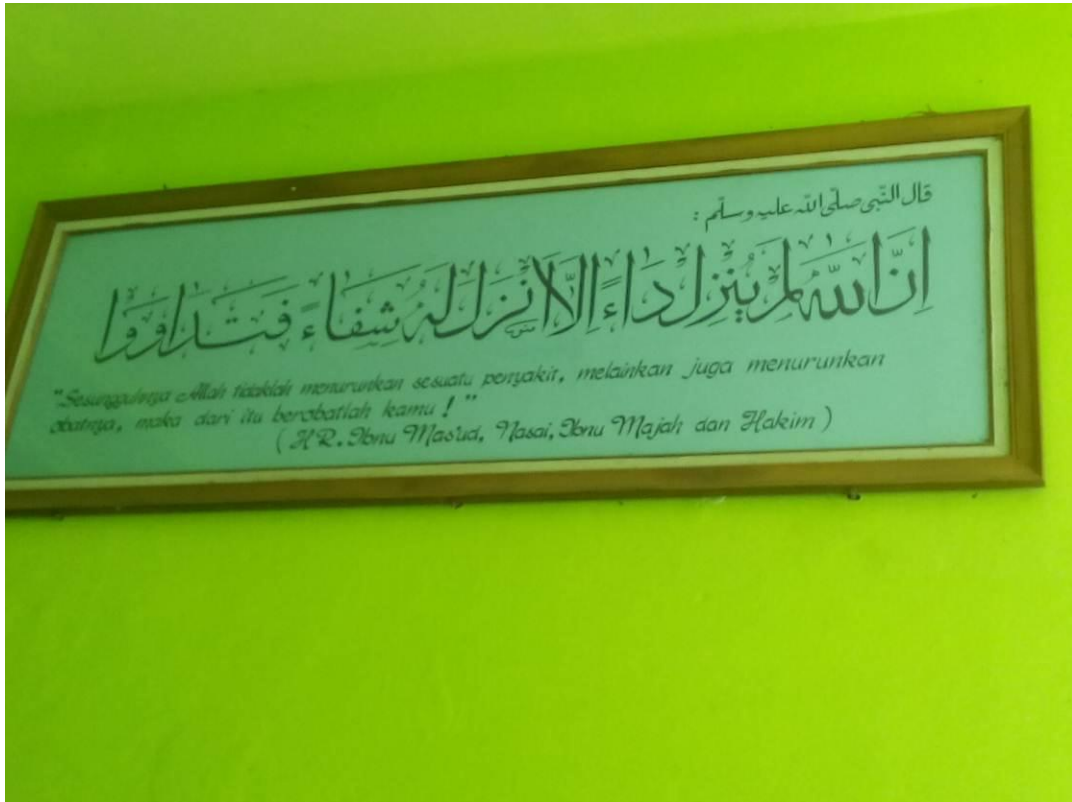 قال النّبى صلّى اللّه عليه وسلّم :
اِنَّ اللّٰهَ لَمْ يُنْزِلْ دَاءً اِلَّا اَنْزَلَ لَهُ شِفَاءً فَتَدَاوَوْا
"Sesungguhnya Allah tidaklah menurunkan sesuatu penyakit, melainkan juga menurunkan
obatnya, maka dari itu berobatlah kamu ! "
( HR. Ibnu Mas'ud, Nasai, Ibnu Majah dan Hakim )